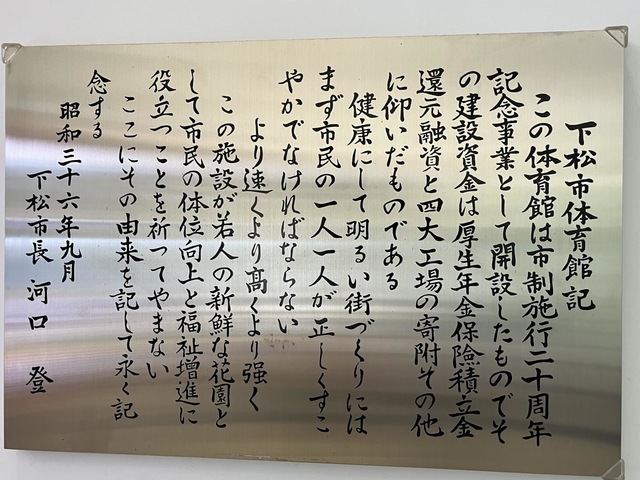 下松市体育館記
この体育館は市制施行二十周年
記念事業として開設したものでそ
の建設資金は厚生年金保険積立金
還元融資と四大工場の寄附その他
に仰いだものである
健康にして明るい街づくりには
まず市民の一人一人が正しくすこ
やかでなければならない
より速くより高くより强く
この施設が若人の新鮮な花園と
して市民の体位向上と福祉増進に
役立つことを祈つてやまない
ここにその由来を記して永く記
念する
昭和三十六年九月
下松市長 河口 登